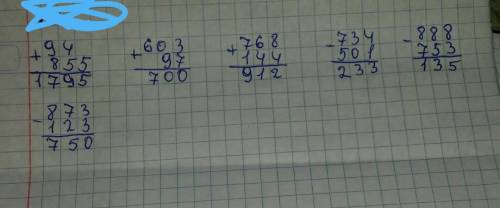 + 94
855
1795
+ 603
97
700
+ 768
144
912
- 734
501
233
- 888
753
135
- 873
123
750